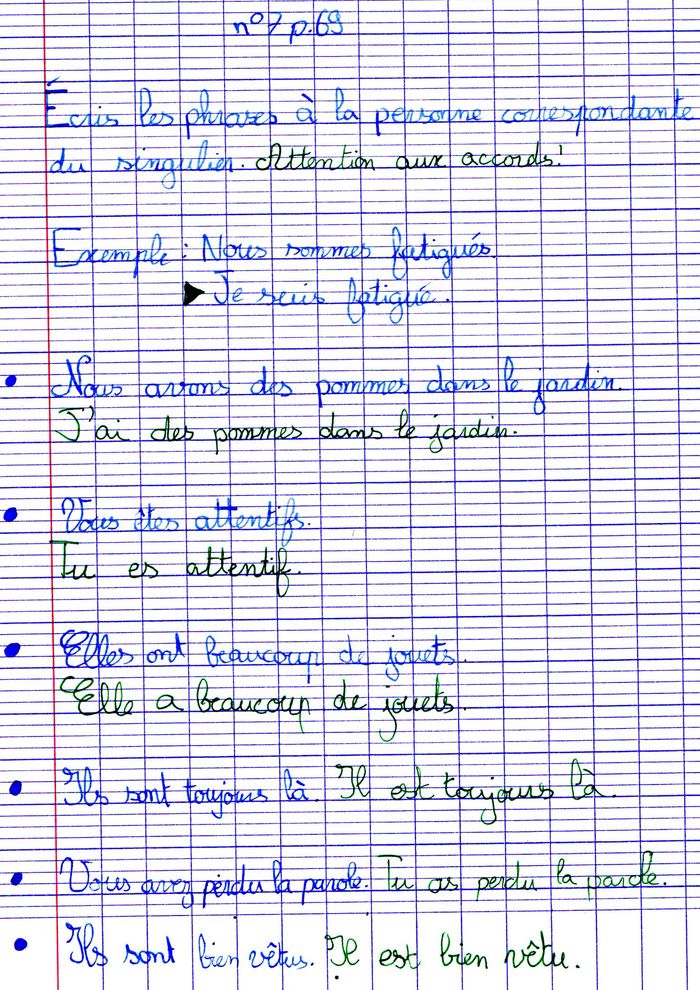 n°7 p.69
Écris les phrases à la personne correspondante
du singulier. Attention aux accords!
Exemple : Nous sommes fatigués.
► Je suis fatigué.
• Nous avons des pommes dans le jardin.
J'ai des pommes dans le jardin.
• Vous êtes attentifs.
Tu es attentif.
• Elles ont beaucoup de jouets.
Elle a beaucoup de jouets.
• Ils sont toujours là. Il est toujours là.
• Vous avez perdu la parole. Tu as perdu la parole.
• Ils sont bien vêtus. Il est bien vêtu.